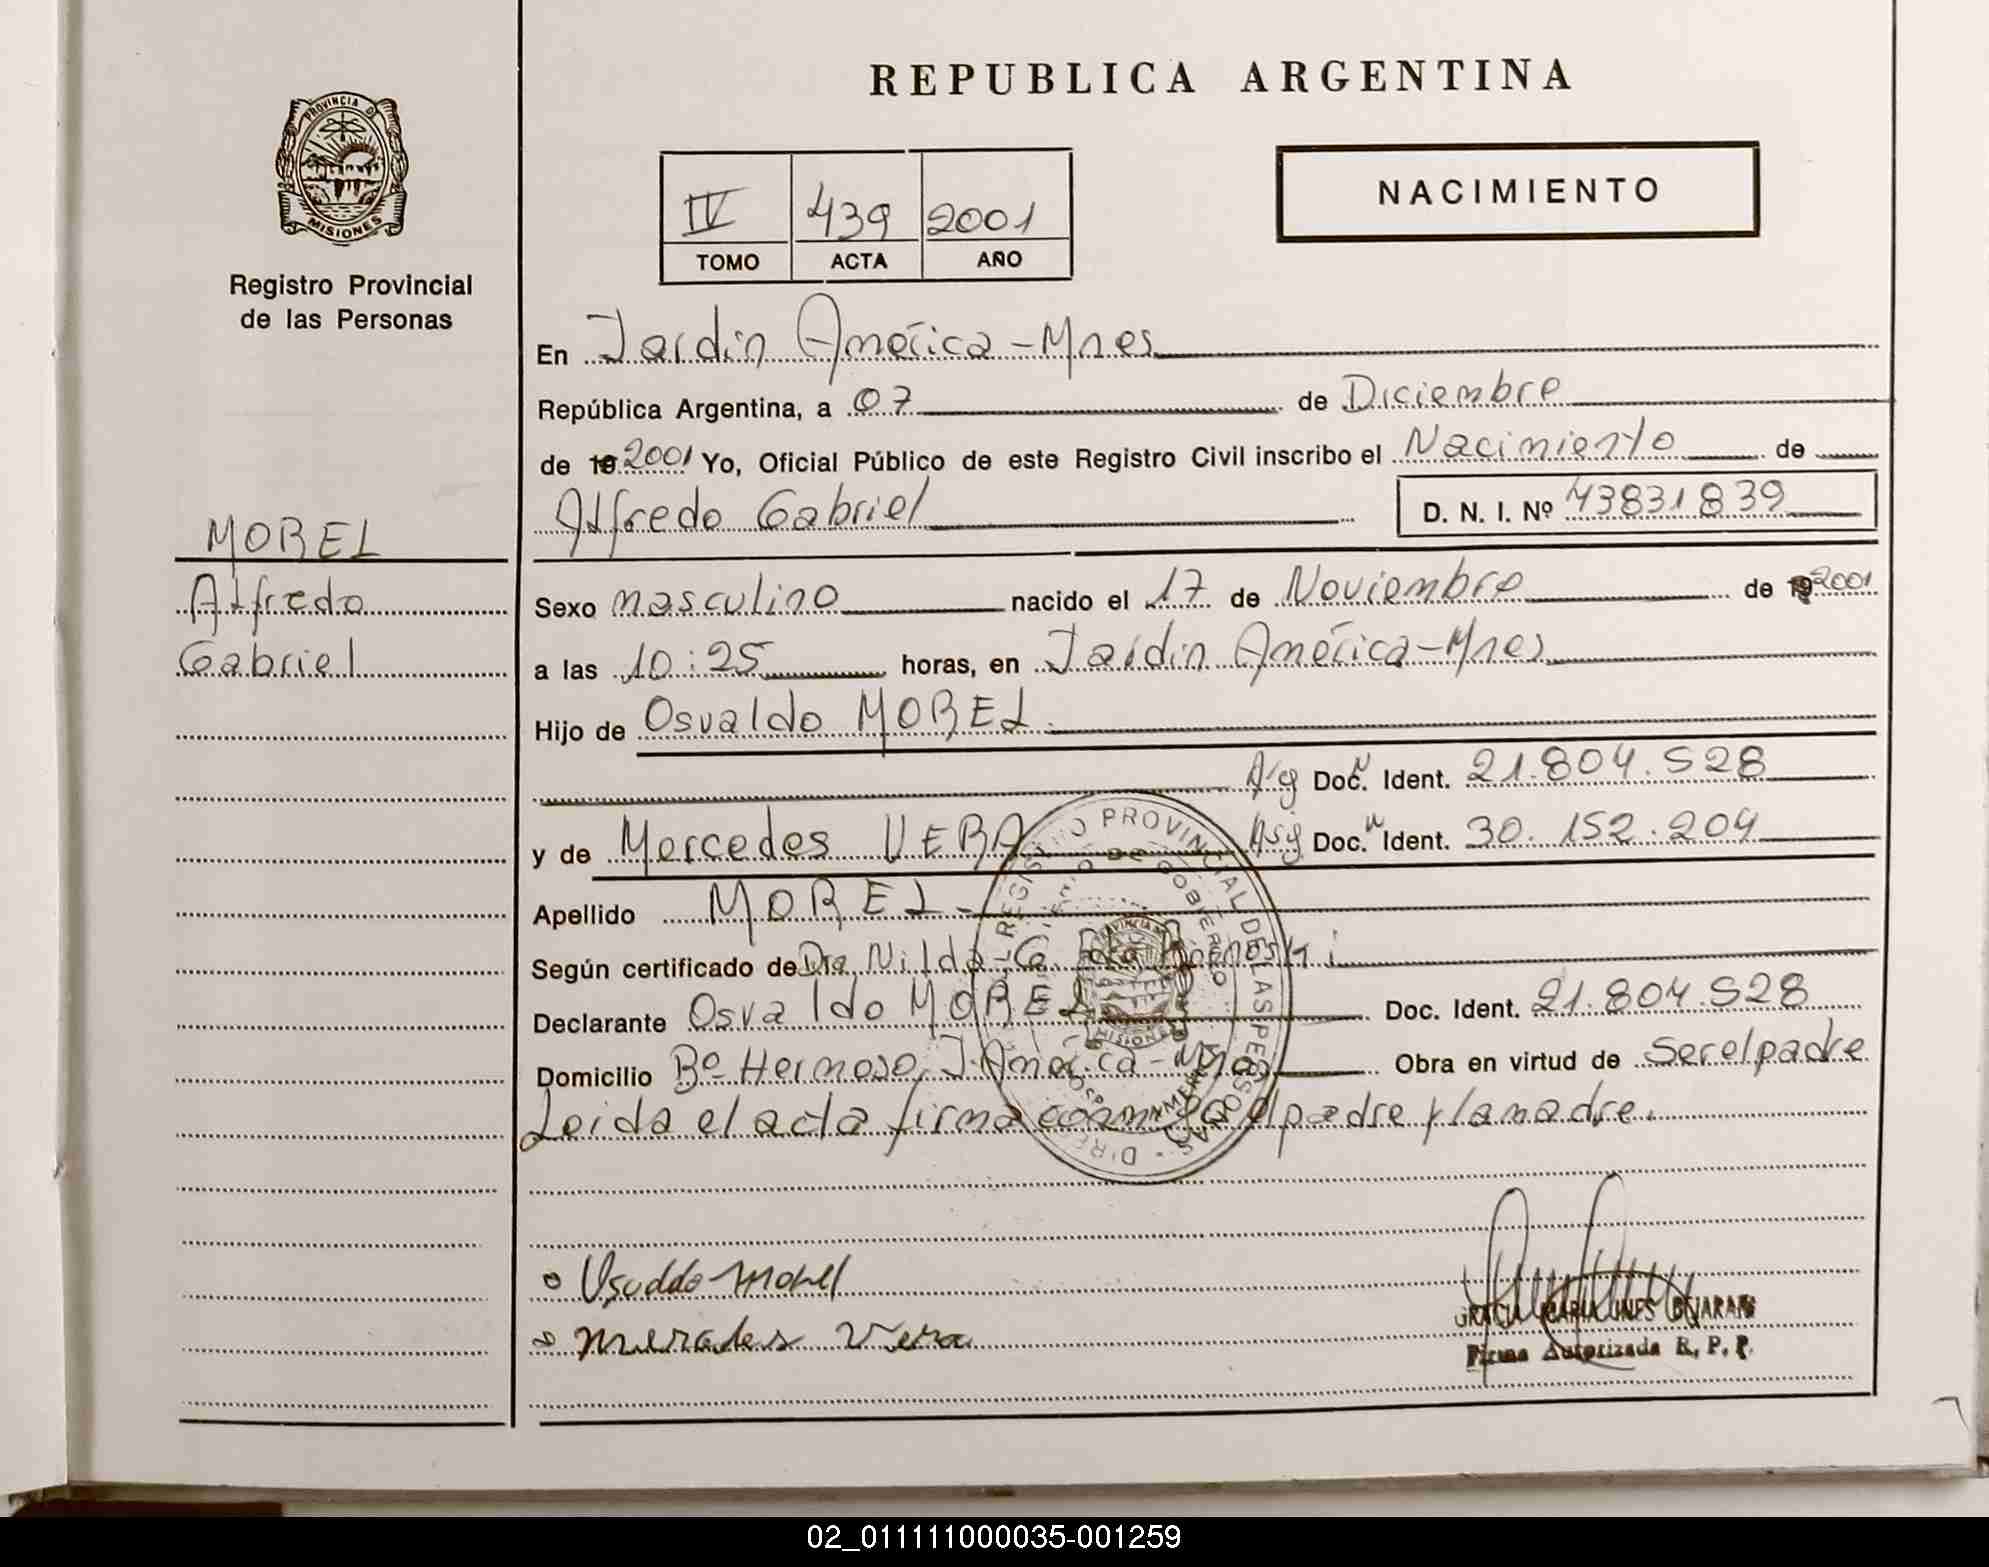 REPUBLICA ARGENTINA
PROVINCIA DE MISIONES
Registro Provincial
de las Personas
NACIMIENTO
IV 439 2001
TOMO ACTA AÑO
En Jardín América - Mnes
República Argentina, a 07 de Diciembre
de 2001 Yo, Oficial Público de este Registro Civil inscribo el Nacimiento de
Alfredo Gabriel D. N. I. Nº 43831839
MOREL
Alfredo
Gabriel
Sexo masculino nacido el 17 de Noviembre de 2001
a las 10:25 horas, en Jardín América - Mnes
Hijo de Osvaldo MOREL
Arg Doc. Ident. 21.804.528
y de Mercedes VERA Arg Doc. Ident. 30.152.209
Apellido MOREL
Según certificado de Dra. Nilda G.
Declarante Osvaldo MOREL Doc. Ident. 21.804.528
Domicilio Bº Hermoso, J. América - Mnes Obra en virtud de Ser el padre
Leida el acta firma el padre y la madre.
REGISTRO PROVINCIAL DE LAS PERSONAS
Osvaldo Morel
Mercedes Vera
MARIA INES BEJARANO
Firma Autorizada R. P. P.
02_011111000035-001259